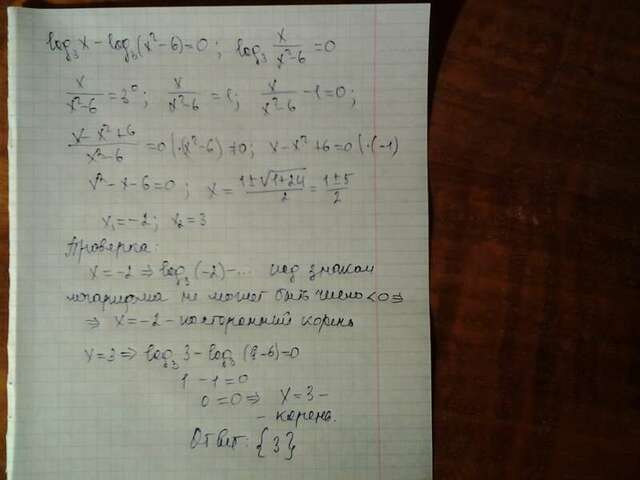 log₃x - log₃(x²-6)=0; log₃ x/(x²-6) =0
x/(x²-6) = 3⁰; x/(x²-6) = 1; x/(x²-6) - 1=0;
(x-x²+6)/(x²-6) =0 |·(x²-6)≠0; x-x²+6=0 |·(-1)
x²-x-6=0; x = (1±√(1+24))/2 = (1±5)/2
x₁=-2; x₂=3
Проверка:
x=-2 ⇒ log₃(-2)-... под знаком
логарифма не может быть число <0 ⇒
⇒ x=-2 - посторонний корень
x=3 ⇒ log₃3-log₃(9-6)=0
1-1=0
0=0 ⇒ x=3-
- корень.
Ответ: {3}